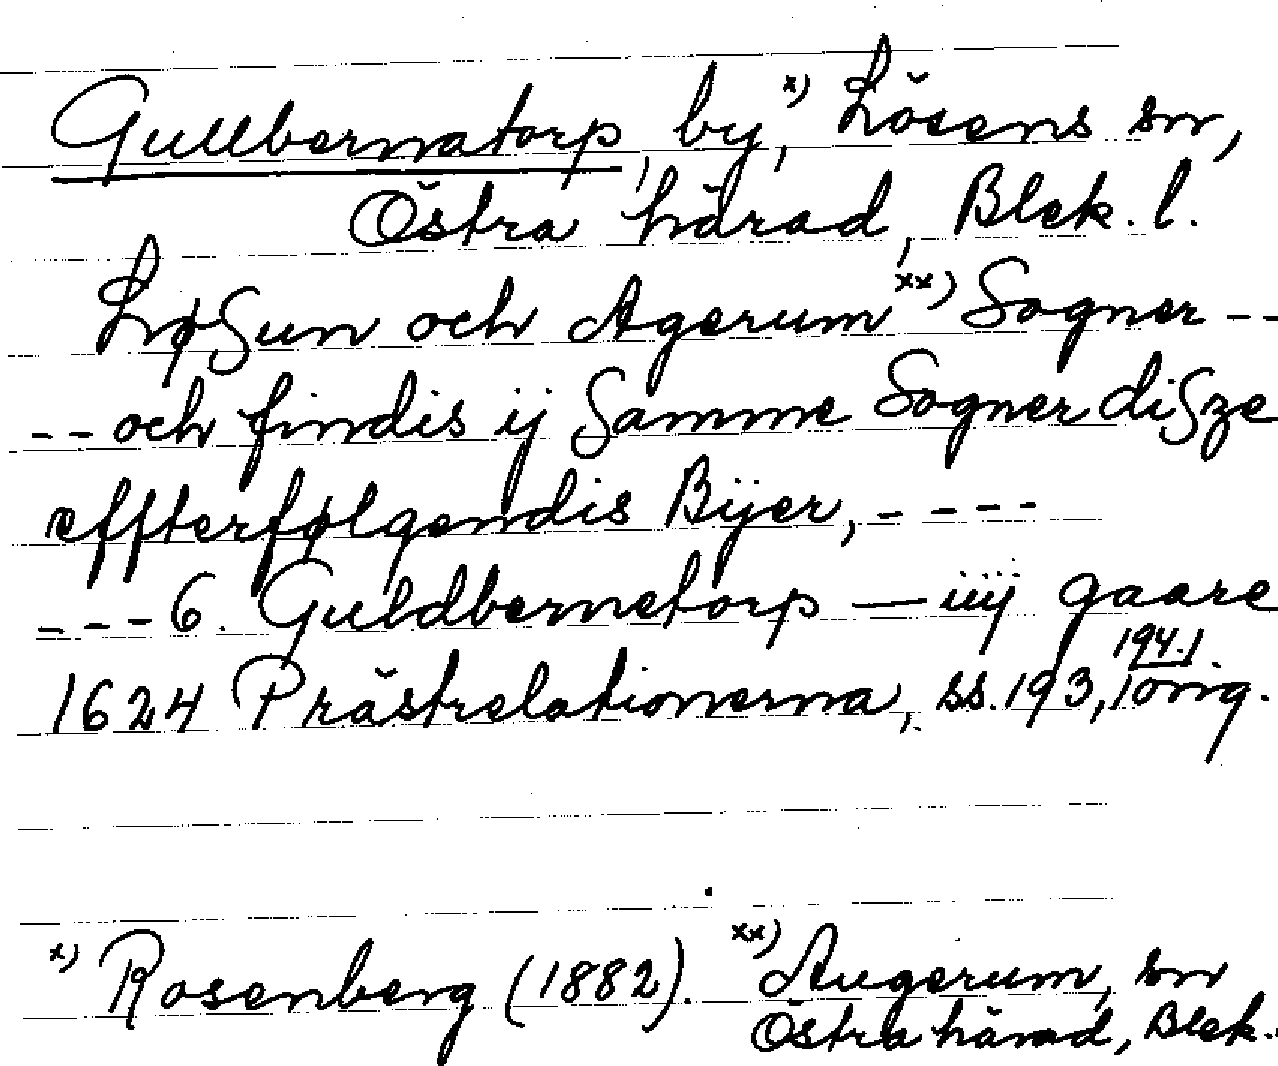 Gullbernatorp, by,x) Lösens sn,
Östra härad, Blek. l.
Løsun och Agerum xx) Sogner --
-- och findis ij samme Sogner disze
effterfølgendis Bijer, ----
--- 6. Guldbernetorp — iiij gaare
1624 Prästrelationerna, ss. 193, 194.1 orig.
x) Rosenberg (1882). xx) Augerum, sn
Östra härad, Blek.